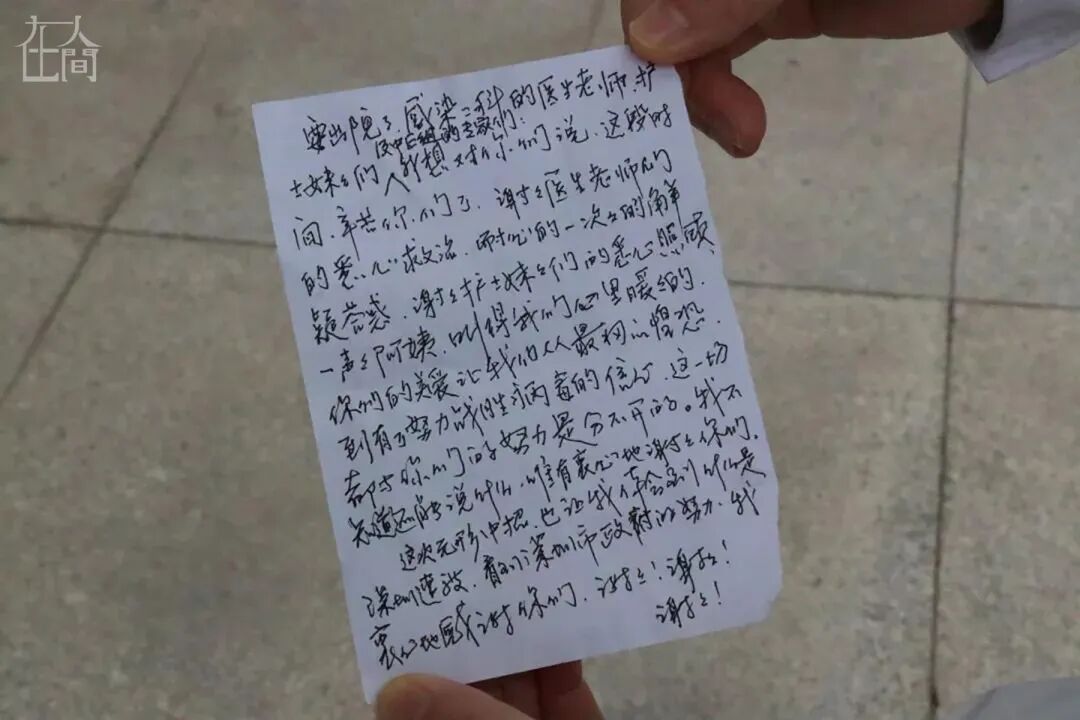 在人間
要出院了、感染三科的医生老师、护
及中医组的专家们:
士妹々们 我想对你们说、这段时
间、辛苦你们了、谢々医生老师们
的悉心救治、耐心的一次々的解
疑答惑、谢々护士妹々们的悉心照顾、
一声々阿姨、叫得我们心里暖々的、
你们的关爱让我们从最初的惶恐、
到有了努力战胜病毒的信心、这一切
都与你们的努力是分不开的。我不
知道还能说什么、唯有衷心地谢々你们。
这次无形中招、也让我体会到什么是
深圳速度、看到深圳市政府的努力、我
衷心地感谢你们、谢々！谢々！
谢々！